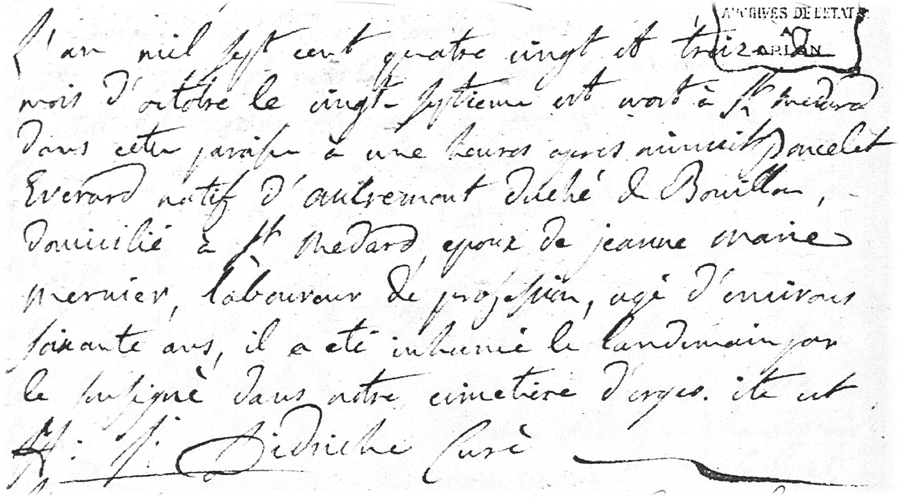 ARCHIVES DE L'ETAT
A
ARLON
L'an mil sept cent quatre vingt et treize
mois d'octobre le vingt septieme est mort à St medard
dans cette paroisse à une heures apres minuit Poncelet
Everard natif d'autremont duché de Bouillon,
domicilié à St Medard, epoux de jeanne marie
mernier, làboureur de profession, agé d'environs
soixante ans, il a eté inhumé le landemain par
le sousigné dans notre cimetiere d'orgeo. ita est
H: J: Didriche Curé